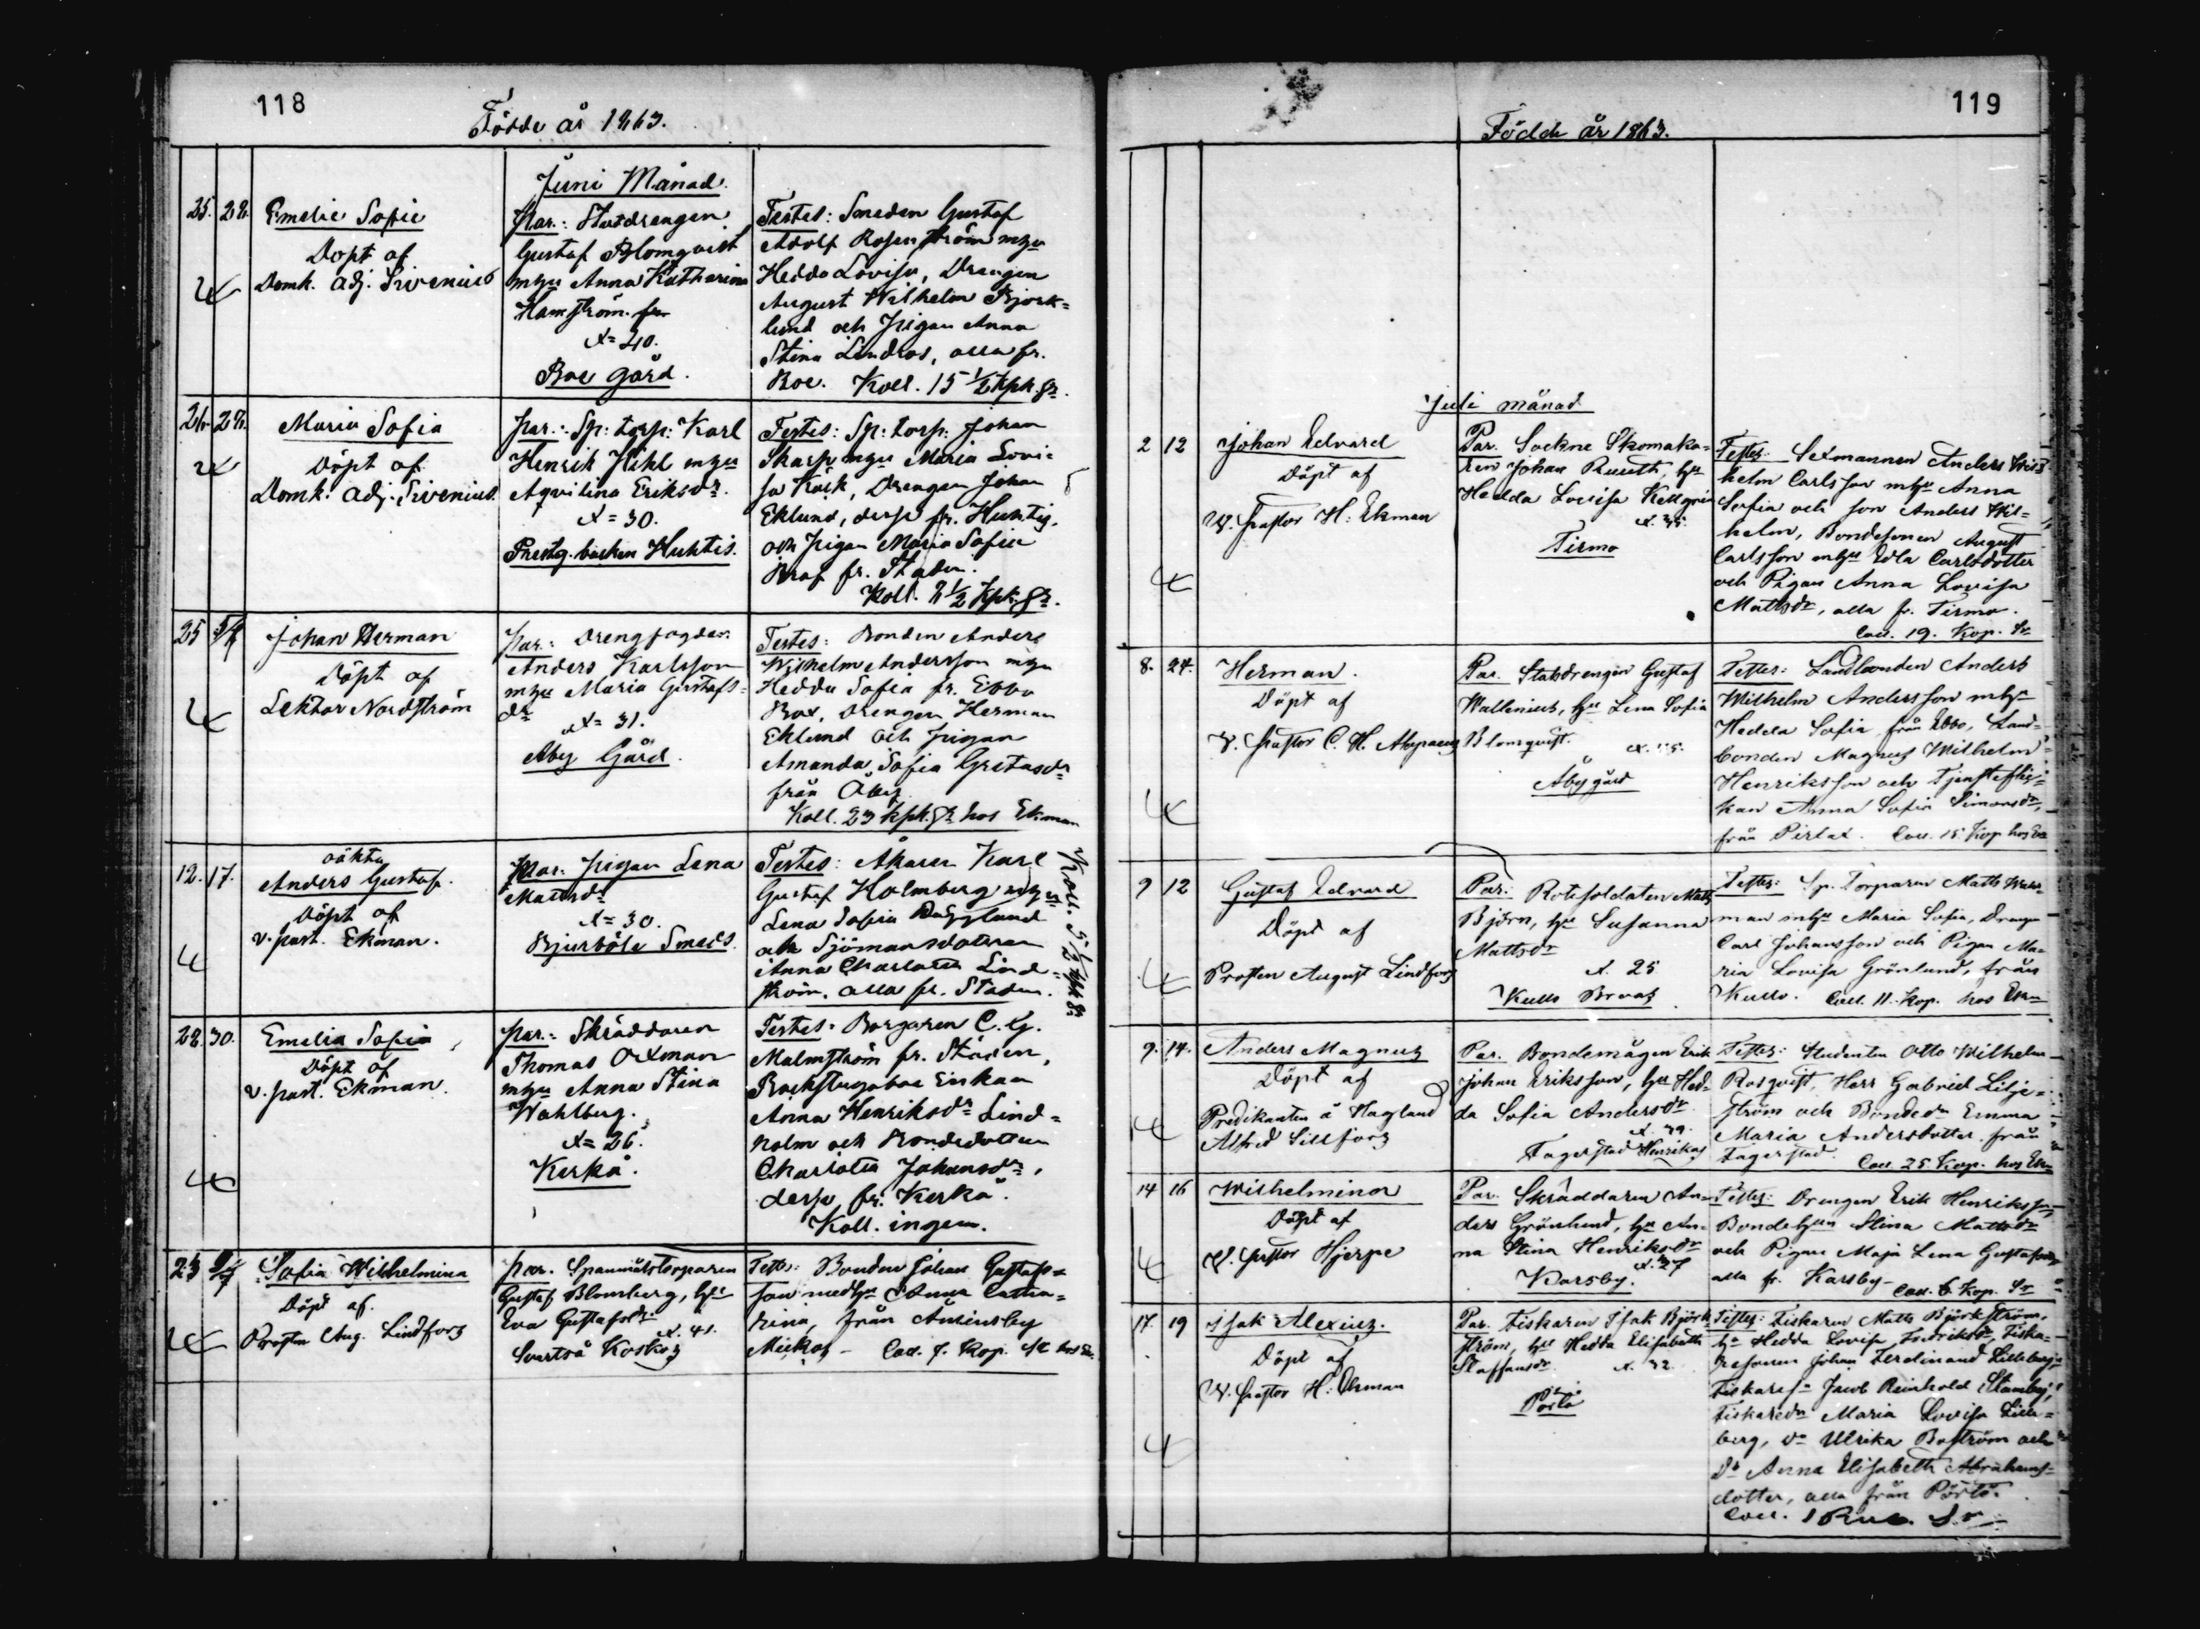 118
Födde år 1863.
Juni Månad.
25. 28. Emelie Sofie
Döpt af
Domk. adj. Sirenius
par.: Statdrengen
Gustaf Blomqvist
mhu Anna Katharina
Hamström. fr.
x = 40.
Boe gård.
Testes: Smeden Gustaf
Adolf Rosenström mhu
Hedda Lovisa, Drengen
August Wilhelm Björk=
lund och pigan Anna
Stina Lindros, alla fr.
Boe. Koll. 15 1/2 kpk. Sr.
26. 28. Maria Sofia
Döpt af
Domk. adj. Sirenius.
par.: Sp: torp: Karl
Henrik Kihl mhu
Aqvilina Eriksdr.
x = 30.
Prestg. backen Huhtis.
Testes: Sp: torp: Johan
Skarp mhu Maria Lovi=
sa Kock, Drengen Johan
Eklund, desse fr. Huhtis.
och pigan Maria Sofia
fr. Staden.
Koll. 8 1/2 Kpk. Sr.
25 5/7 Johan Herman
Döpt af
Lektor Nordström
par.: Drengfogden
Anders Karlsson
mhu Maria Gustafs=
dr
x = 31.
Åby Gård.
Testes: Bonden Anders
Wilhelm Andersson mhu
Hedda Sofia fr. Ebbo
Box, Drengen Herman
Eklund och pigan
Amanda Sofia Gretasdr
från Åby.
Koll. 23 kpk. Sr hos Ekman
12. 17. oäkta
Anders Gustaf.
Döpt af
v. past. Ekman.
Mar. pigan Lena
Matsdr
x = 30.
Bjurböle Smeds.
Testes: Åkaren Karl
Gustaf Holmberg mhu
Lena Sofia Hägglund
och Sjömansdottern
Anna Charlotta Lind=
ström. alla fr. Staden.
Koll. 5 1/2 kpk Sr.
28. 30. Emelia Sofia
Döpt af
v. past. Ekman.
par.: Skräddaren
Thomas Oxman
mhu Anna Stina
Wahlberg.
x = 26.
Kerko.
Testes: Borgaren C. G.
Malmström fr. Staden,
Backstugaboe Enkan
Anna Henriksdr Lind=
holm och Bondedottern
Charlotta Johansdr,
desse fr. Kerko.
Koll. ingen.
23 Sofia Wilhelmina
Döpt af
Prosten Aug. Lindfors
par. Spannmålstorparen
Gustaf Blomberg, hu
Eva Gustafsdr
x. 41.
Svartså Koskos
Testes: Bonden Johan Gustafs=
son med hu Anna Catha=
rina, från
Mickos — Coll. 7. Kop. Sr hos Ek.
119
Födde år 1863.
Juli månad
2 12 Johan Edvard
Döpt af
V. Pastor H. Ekman
Par. Sockne Skomaka=
ren Johan Ruuth, hu
Hedda Lovisa Kellgrén
x. 35.
Tirmo
Testes: Sexmannen Anders Wil=
helm Carlsson mhu Anna
Sofia och son Anders Wil=
helm, Bondesonen August
Carlsson mhu Edla Carlsdotter
och Pigan Anna Lovisa
Mattsdr, alla fr. Tirmo.
Coll. 19. Kop. Sr
8. 24. Herman.
Döpt af
V. Pastor C. H. Alopaeus
Par. Statsdrengen Gustaf
Wallenius, hu Lena Sofia
Blomqvist.
Åby gård
Testes: Landbonden Anders
Wilhelm Andersson mhu
Hedda Sofia från Ebbo, Land=
bonden Magnus Wilhelm
Henriksson och Tjensteflic=
kan Anna Sofia Simonsdr,
från Pirlax. Coll. 15 Kop hos Ek
9 12 Gustaf Edvard
Döpt af
Prosten August Lindfors
Par: Rotesoldaten Matts
Björn, hu Susanna
Mattsdr
x. 25
Kullo Broas
Testes: Sp. Torparen Matts
man mhu Maria Sofia, Drengen
Carl Johansson och Pigan Ma=
ria Lovisa Grönlund, från
Kullo. Coll. 11. Kop. hos Ek
9. 14. Anders Magnus
Döpt af
Predikanten å Hogland
Alfred Sillfors
Par. Bondemågen Erik
Johan Eriksson, hu Hed=
da Sofia Andersdr
x. 39.
Fagerstad Henrikas
Testes: Studenten Otto Wilhelm
Rosqvist, Herr Gabriel Lilje=
ström och Bondedr Emma
Maria Andersdotter från
Fagerstad. Coll. 25 Kop. hos Ek
14 16 Wilhelmina
Döpt af
V. Pastor Hjerpe
Par. Skräddaren An=
ders Grönlund, hu An=
na Stina Henriksdr
x. 27
Karsby.
Testes: Drengen Erik Henriksson,
Bondehun Stina Mattsdr
och Pigan Maja Lena Gustafsdr
alla fr. Karsby — Coll. 6. Kop. Sr
17. 19 Isak Alexius.
Döpt af
V. Pastor H. Ekman
Par. Fiskaren Isak Björk=
ström, hu Hedda Elisabeth
Staffansdr x. 32
Pörtö
Testes: Fiskaren Matts Björkström,
hu Hedda Lovisa Fredriksdr, Fiska=
resonen Johan Ferdinand Lilleberg,
Fiskares. Jacob Reinhold
Fiskaredr Maria Lovisa Lille=
berg, Dr Ulrika Boström och
Dr Anna Elisabeth Abrahams=
dotter, alla från Pörtö.
Coll. 1 Rub. Sr